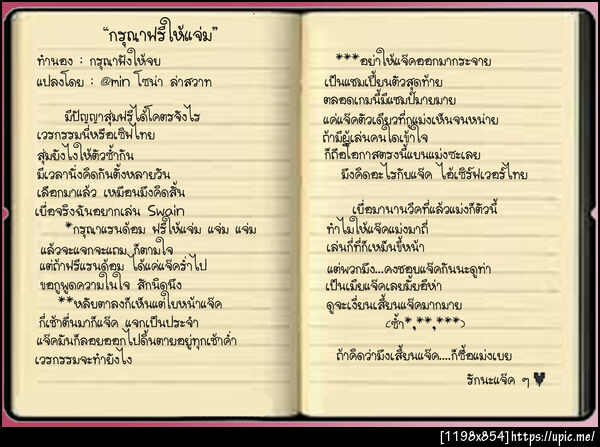 “กรุณาฟรีให้แจ่ม”
ทำนอง : กรุณาฟังให้จบ
แปลงโดย : @min โซน่า ล่าสวาท
มีปัญญาสุ่มฟรีได้โคตรจังไร
เวรกรรมนี่หรือเซิฟไทย
สุ่มยังไงให้ตัวซ้ำกัน
มีเวลานั่งคิดกันตั้งหลายวัน
เลือกมาแล้ว เหมือนมึงคิดสั้น
เบื่อจริงฉันอยากเล่น Swain
*กรุณาแรนด้อม ฟรีให้แจ่ม แจ่ม แจ่ม
แล้วจะแจกจะแถม ก็ตามใจ
แต่ถ้าฟรีแรนด้อม ได้แค่แจ๊คร่ำไป
ขอกูพูดความในใจ สักนิดนึง
**หลับตาลงก็เห็นแต่ใบหน้าแจ๊ค
กี่เช้าตื่นมาก็แจ๊ค แจกเป็นประจำ
แจ๊คมันก็ลอยออกไปดิ้นตายอยู่ทุกเช้าค่ำ
เวรกรรมจะทำยังไง
***อย่าให้แจ๊คออกมากระจาย
เป็นแชมเปี้ยนตัวสุดท้าย
ตลอดเกมนี้มีแชมป์มายมาย
แค่แจ๊คตัวเดียวที่กูแม่งเห็นจนหน่าย
ถ้ามีผู้เล่นคนใดเข้าใจ
ก็ถือโอกาสตรงนี้แบนแม่งซะเลย
มึงคิดอะไรกับแจ๊ค ไอ้เซิร์ฟเวอร์ไทย
เบื่อมานานวีคที่แล้วแม่งก็ตัวนี้
ทำไมให้แจ๊คแม่งมาถี่
เล่นกี่ทีก็เหม็นขี้หน้า
แต่พวกมึง...คงชอบแจ๊คกันนะดูท่า
เป็นเมียแจ๊คเลยมั้ยอีห่า
ดูจะเงี่ยนเสี้ยนแจ๊คมากมาย
(ซ้ำ*,**,***)
ถ้าคิดว่ามึงเสี้ยนแจ๊ค....ก็ซื้อแม่งเบย
รักนะแจ๊ค ๆ ♥
[1198x854]https://upic.me/